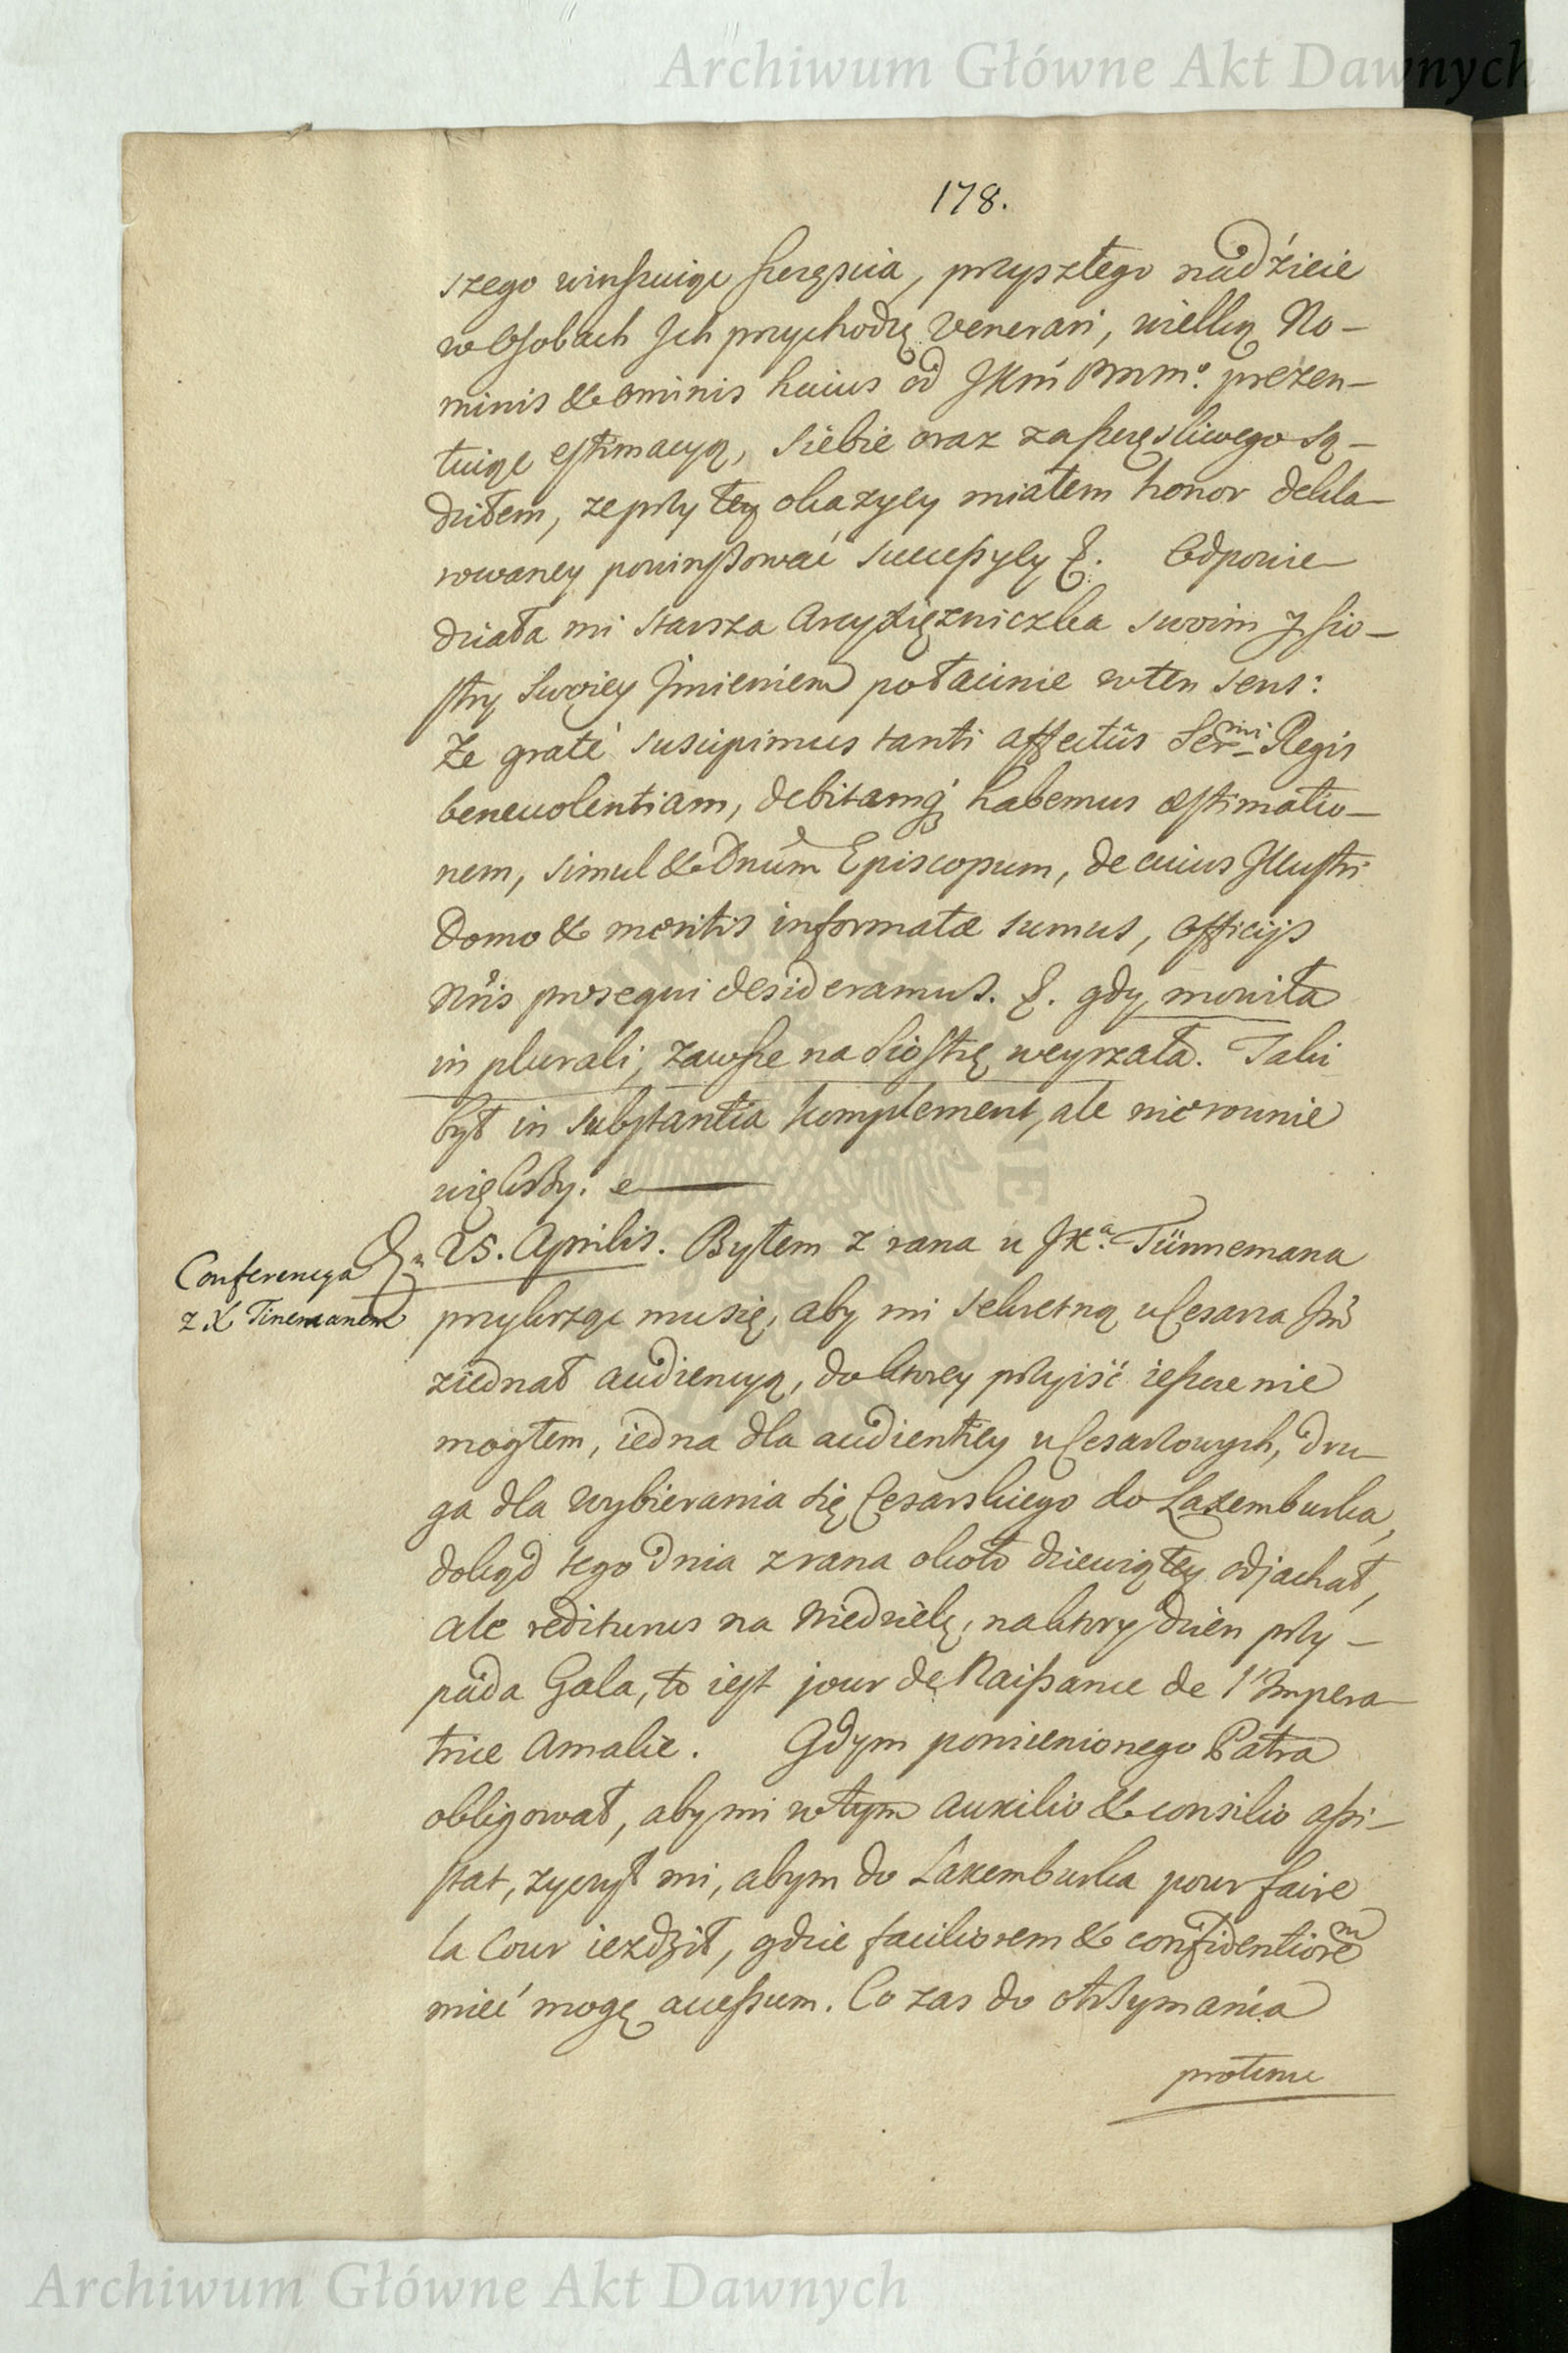 Archiwum Główne Akt Dawnych
178.
szego winszuiąc szczęscia, przyszłego nadźieie
w Osobach Ich przychodzę venerari, wielką No-
minis & Ominis huius od JKM PMM° prezen-
tuiąc estimacyą, siebie oraz za szczęsliwego są-
dziłem, ze przy tey okazyey miałem honor dekla-
rowaney powinszować successyey &. Odpowie-
działa mi starsza Arcyxiężniczka swoim y sio-
stry swoiey Jmieniem po łacinie w ten sens:
Ze graté suscipimus tanti affectûs Ser~mi Regis
benevolentiam, debitamq; habemus æstimatio-
nem, simul & Dnum Episcopum, de cuius Illustri
Domo & meritis informatæ sumus, officijs
Nris prosequi desideramus. &. gdy mowiła
in plurali, zawsze na siostrę weyrzała. Taki
był in substantia komplement, ale nierownie
większy.
Conferencya
z X Tinemanem
25. Aprilis. Byłem z rana u JX~a Tünnemana
przykrząc mu się, aby mi sekretną u Cesarza Jm
ziednał audiencyą, do ktorey przyiść ieszcze nie
mogłem, iedna dla audientiey u Cesarzowych, dru-
ga dla wybierania się Cesarskiego do Laxemburka,
dokąd tego dnia z rana około dziewiątey odjachał,
ale rediturus na Niedzielę, na ktory dzien przy-
pada Gala, to iest jour de Naissance de l'Impera-
trice Amalie. Gdym pomienionego Patra
obligował, aby mi w tym auxilio & consilio assi-
stat, zyczył mi, abym do Laxemburka pour faire
la Cour iezdził, gdzie faciliorem & confidentiorem
mieć mogę accessum. Co zas do otrzymania
protunc
Archiwum Główne Akt Dawnych